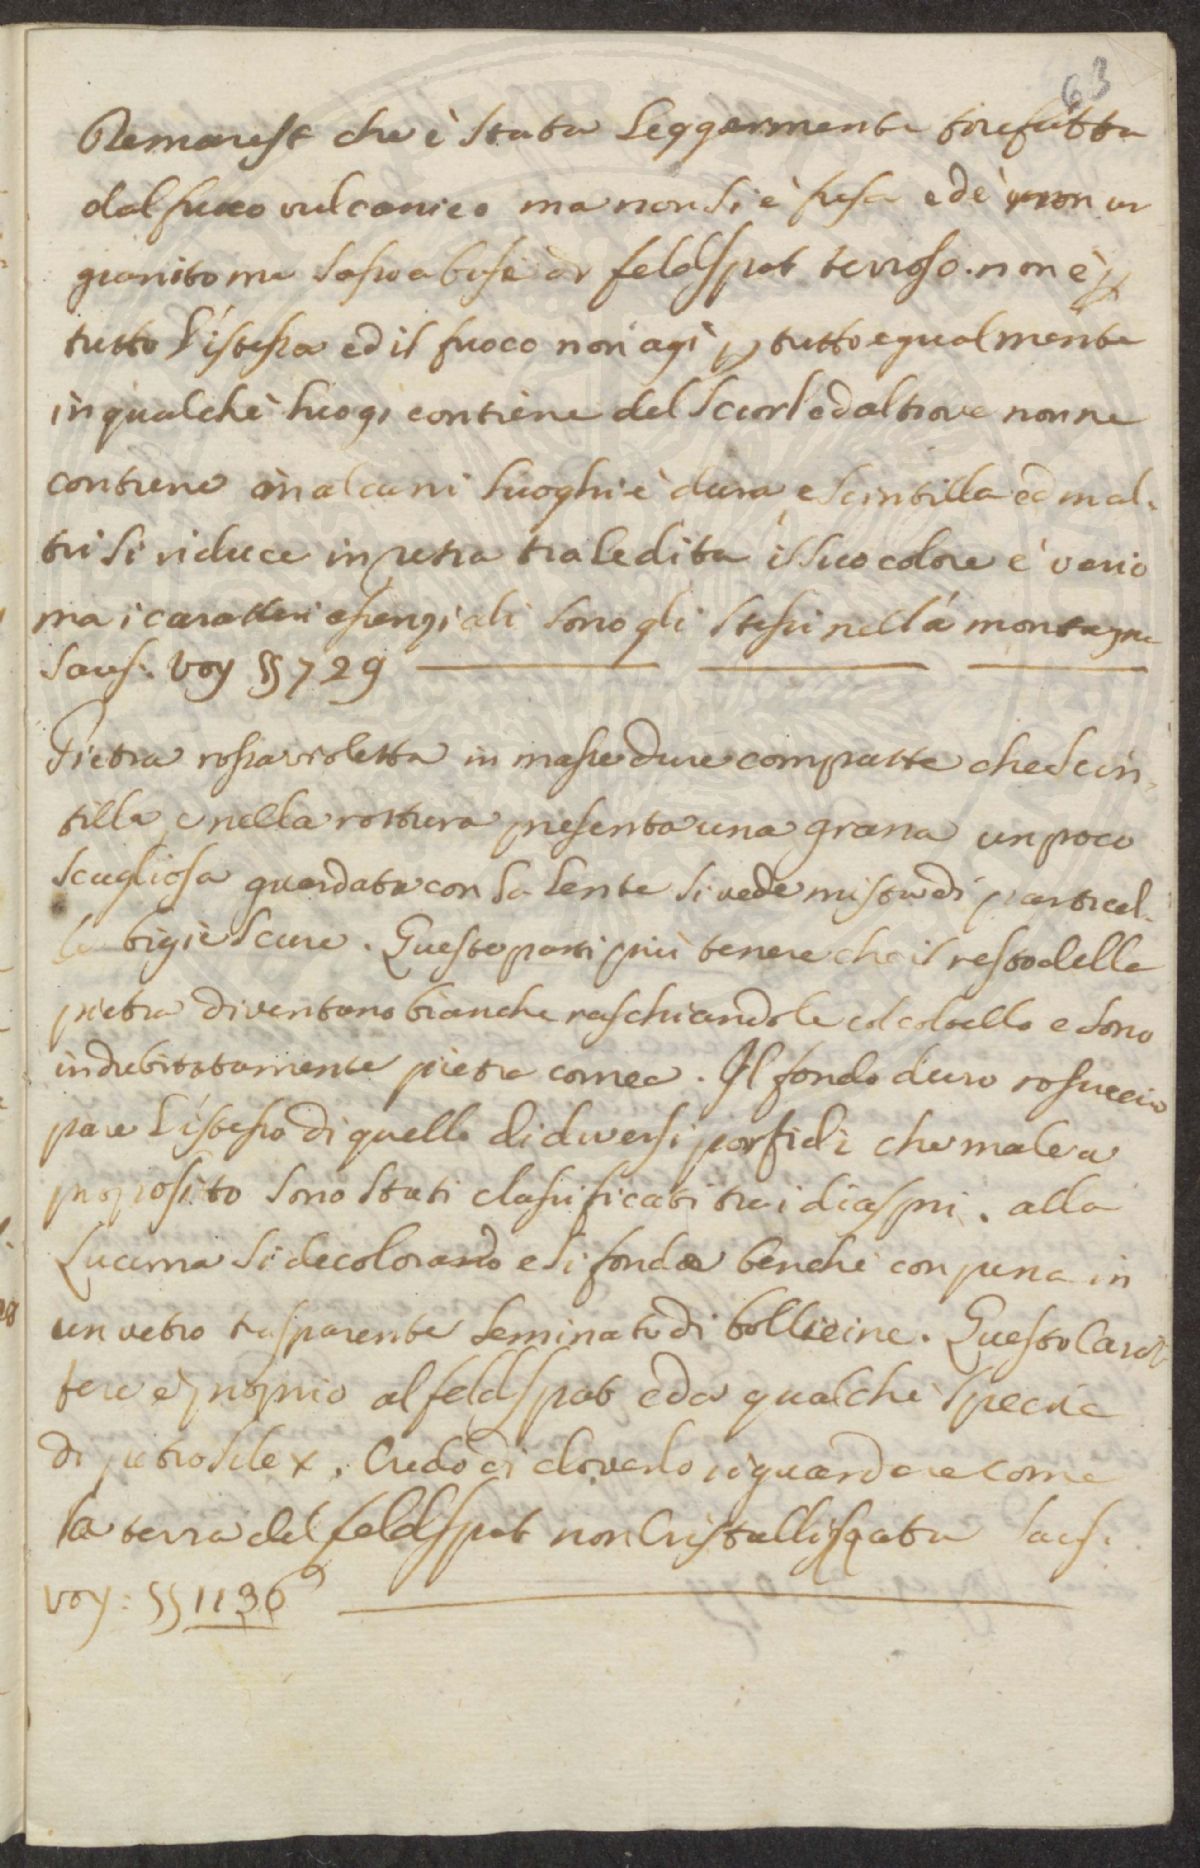 63
Demarest che è stata leggermente torefatta
dal fuoco vulcanico ma non si è fusa ed è non un
granito ma sasso a base di feldspat terroso. non è p
tutto l'istessa ed il fuoco non agì p tutto egualmente
in qualche luogi contiene del scorl ed altrove non ne
contiene in alcuni luoghi è dura e scintilla ed in al-
tri si riduce in petra tra le dita il suo colore è vario
ma i caratteri essenziali sono gli stessi nella montagna
Saus: Voy §§ 729
Pietra rossa violetta in masse dure compatte che scin-
tilla e nella rottura presenta una grana un poco
scagliosa guardata con la lente si vede mista di particel-
le bigie scure. Queste parti più tenere che il resto della
pietra diventano bianche raschiandole col coltello e sono
indubitatamente pietra cornea. Il fondo duro rossuccio
pare l'istesso di quello di diversi porfidi che male a
proposito sono stati classificati tra i diaspri. alla
Lucerna si decolorano e si fonde benche con pena in
un vetro trasparente seminato di bollicine. Questo Carat
tere è proprio al feldspat ed a qualche specie
di petrosilex. Credo di doverlo riguardare come
la terra del feldspat non Cristallizzata Saus.
voy: §§ 1136